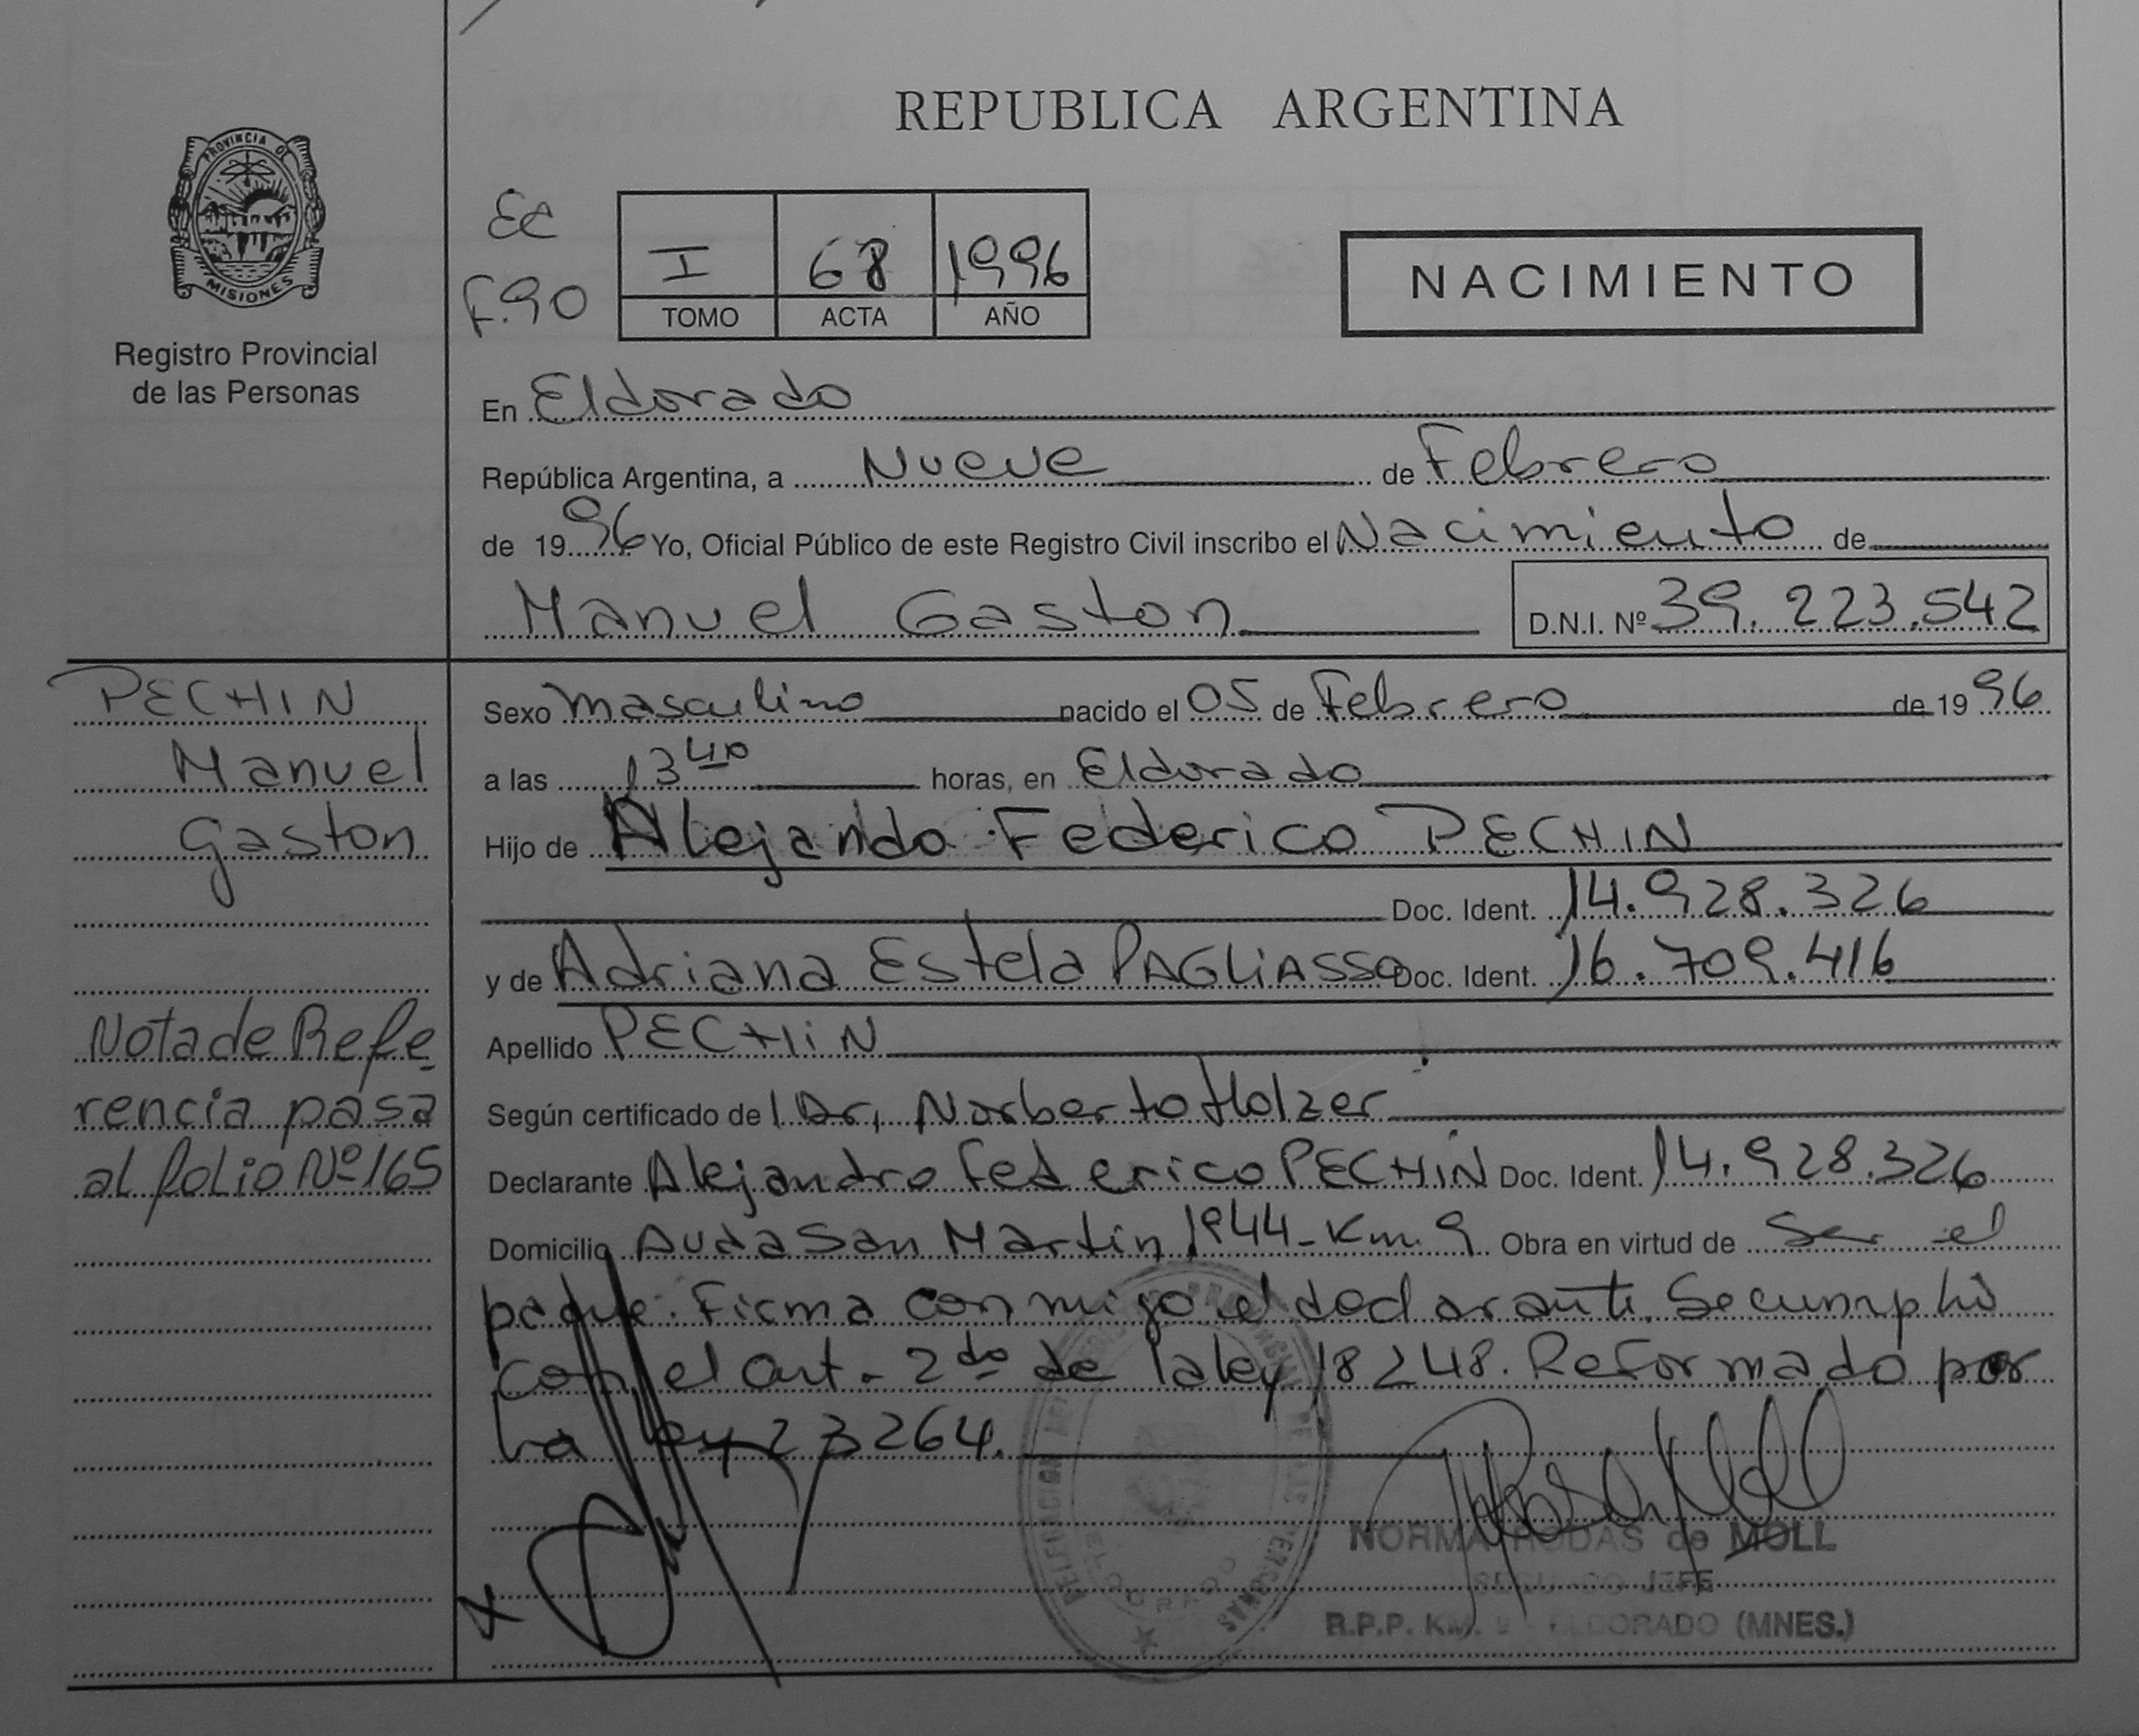 REPUBLICA ARGENTINA
PROVINCIA DE
MISIONES
Registro Provincial
de las Personas
EC
F.90
I 68 1996
TOMO ACTA AÑO
NACIMIENTO
En Eldorado
República Argentina, a Nueve de Febrero
de 1996 Yo, Oficial Público de este Registro Civil inscribo el Nacimiento de
Manuel Gaston D.N.I. Nº 39.223.542
PECHIN
Manuel
Gaston
Nota de Refe
rencia pasa
al folio Nº 165
Sexo Masculino nacido el 05 de Febrero de 1996
a las 13 40 horas, en Eldorado
Hijo de Alejando Federico PECHIN
Doc. Ident. 14.928.326
y de Adriana Estela PAGLIASSO Doc. Ident. 16.709.416
Apellido PECHIN
Según certificado de l Dr, Norberto Holzer
Declarante Alejandro Federico PECHIN Doc. Ident. 14.928.326
Domicilio Avda San Martin 1944-Km.9 Obra en virtud de Ser el
padre. Firma conmigo el declarante. Se cumplió
con el art. 2do de la ley 18248. Reformado por
la ley 23264.
NORMA RODAS de MOLL
SEGUNDO JEFE
R.P.P. KM. 9 - ELDORADO (MNES.)
ELDORADO